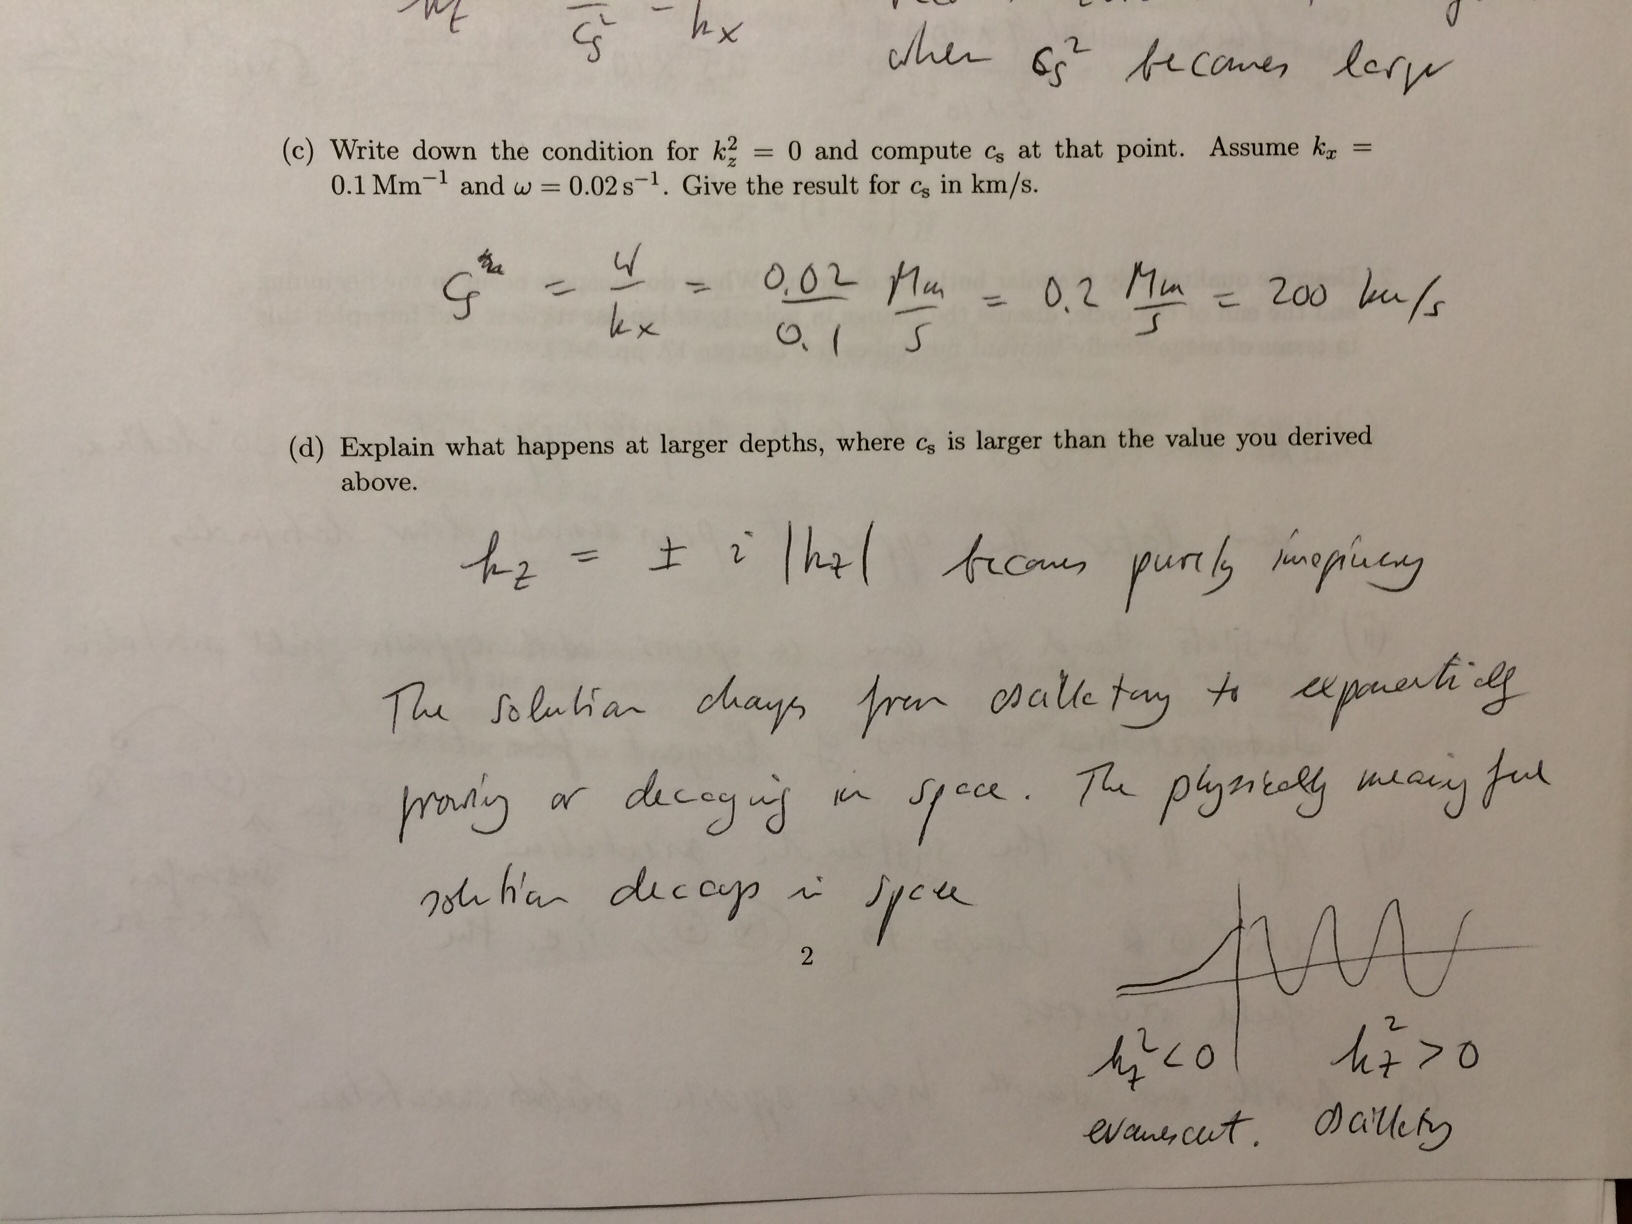 when c_s^2 becomes large
(c) Write down the condition for k_z^2 = 0 and compute c_s at that point. Assume k_x =
0.1 Mm^−1 and ω = 0.02 s^−1. Give the result for c_s in km/s.
c_s = ω/k_x = 0.02/0.1 Mm/s = 0.2 Mm/s = 200 km/s
(d) Explain what happens at larger depths, where c_s is larger than the value you derived
above.
k_z = ± i |k_z| becomes purely imaginary
The solution changes from oscillatory to exponentially
growing or decaying in space. The physically meaningful
solution decays in space
2
k_z^2 < 0 k_z^2 > 0
evanescent. oscillatory